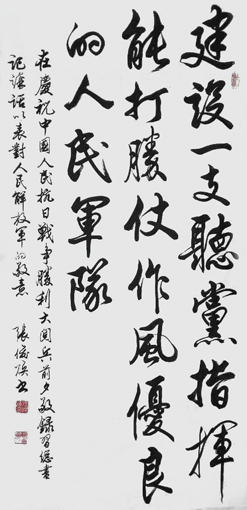 建設一支聽黨指揮
能打勝仗作風優良
的人民軍隊
在慶祝中國人民抗日戰爭勝利大閱兵前夕敬錄習總書
記語以表對人民解放軍的敬意
張俊